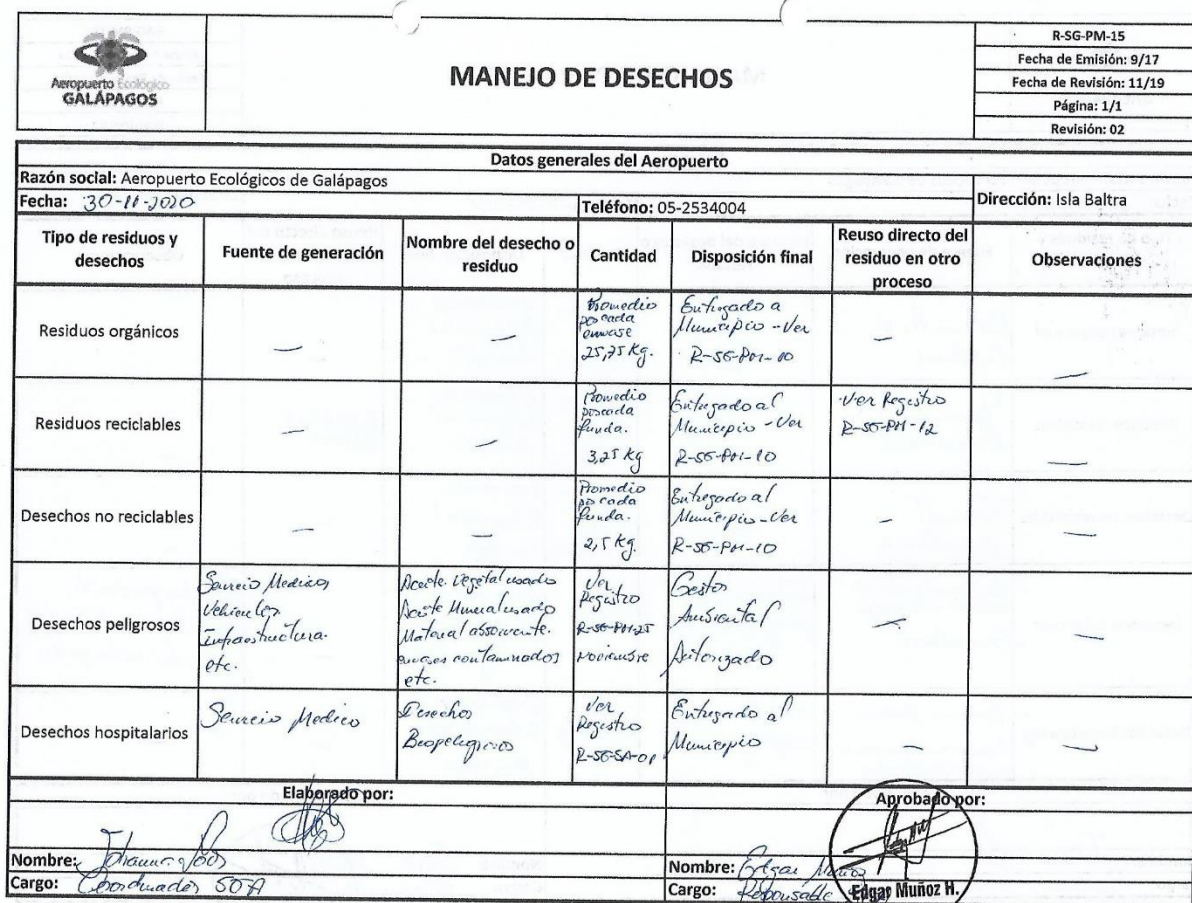 Aeropuerto Ecológico
GALÁPAGOS
MANEJO DE DESECHOS
R-SG-PM-15
Fecha de Emisión: 9/17
Fecha de Revisión: 11/19
Página: 1/1
Revisión: 02
Datos generales del Aeropuerto
Razón social: Aeropuerto Ecológicos de Galápagos
Dirección: Isla Baltra
Fecha: 30-11-2020
Teléfono: 05-2534004
Tipo de residuos y
desechos
Fuente de generación
Nombre del desecho o
residuo
Cantidad
Disposición final
Reuso directo del
residuo en otro
proceso
Observaciones
Residuos orgánicos
—
—
Promedio
por cada
envase
25,75 Kg.
Entregado a
Municipio - Ver
R-SG-PM-10
—
—
Residuos reciclables
—
—
Promedio
por cada
funda.
3,25 Kg
Entregado al
Municipio - Ver
R-SG-PM-10
Ver Registro
R-SG-PM-12
—
Desechos no reciclables
—
—
Promedio
por cada
funda.
2,5 Kg.
Entregado al
Municipio - Ver
R-SG-PM-10
—
—
Desechos peligrosos
Servicio Medico,
Vehiculos,
Infraestructura.
etc.
Aceite Vegetal usado
Aceite Mineral usado
Material absorvente.
envases contaminados
etc.
Ver
Registro
R-SG-PM-25
Noviembre
Gestor
Ambiental
Autorizado
—
—
Desechos hospitalarios
Servicio Medico
Desechos
Biopeligrosos
Ver
Registro
R-SG-SA-01
Entregado al
Municipio
—
—
Elaborado por:
Aprobado por:
Nombre: Johanna
Nombre: Edgar Muñoz
Cargo: Coordinador SOA
Cargo: Responsable
Edgar Muñoz H.